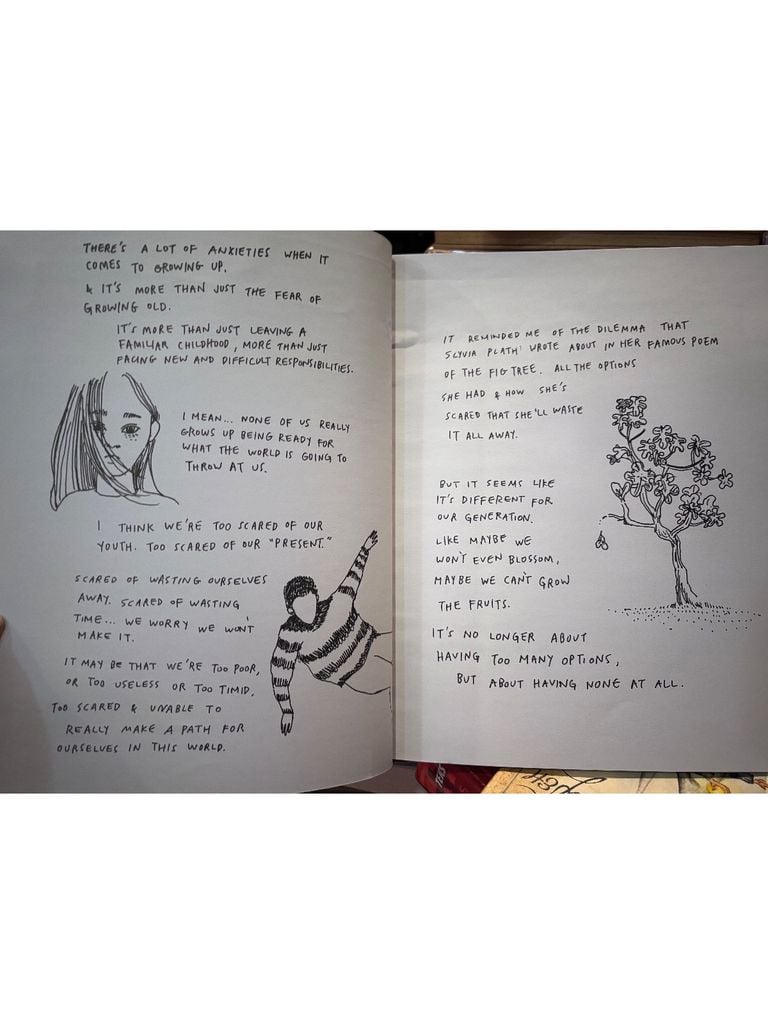 THERE'S A LOT OF ANXIETIES WHEN IT
COMES TO GROWING UP.
& IT'S MORE THAN JUST THE FEAR OF
GROWING OLD.
IT'S MORE THAN JUST LEAVING A
FAMILIAR CHILDHOOD, MORE THAN JUST
FACING NEW AND DIFFICULT RESPONSIBILITIES.
I MEAN... NONE OF US REALLY
GROWS UP BEING READY FOR
WHAT THE WORLD IS GOING TO
THROW AT US.
I THINK WE'RE TOO SCARED OF OUR
YOUTH. TOO SCARED OF OUR "PRESENT."
SCARED OF WASTING OURSELVES
AWAY. SCARED OF WASTING
TIME... WE WORRY WE WON'T
MAKE IT.
IT MAY BE THAT WE'RE TOO POOR,
OR TOO USELESS OR TOO TIMID.
TOO SCARED & UNABLE TO
REALLY MAKE A PATH FOR
OURSELVES IN THIS WORLD.
IT REMINDED ME OF THE DILEMMA THAT
SLYVIA PLATH WROTE ABOUT IN HER FAMOUS POEM
OF THE FIG TREE. ALL THE OPTIONS
SHE HAD & HOW SHE'S
SCARED THAT SHE'LL WASTE
IT ALL AWAY.
BUT IT SEEMS LIKE
IT'S DIFFERENT FOR
OUR GENERATION.
LIKE MAYBE WE
WON'T EVEN BLOSSOM,
MAYBE WE CAN'T GROW
THE FRUITS.
IT'S NO LONGER ABOUT
HAVING TOO MANY OPTIONS,
BUT ABOUT HAVING NONE AT ALL.